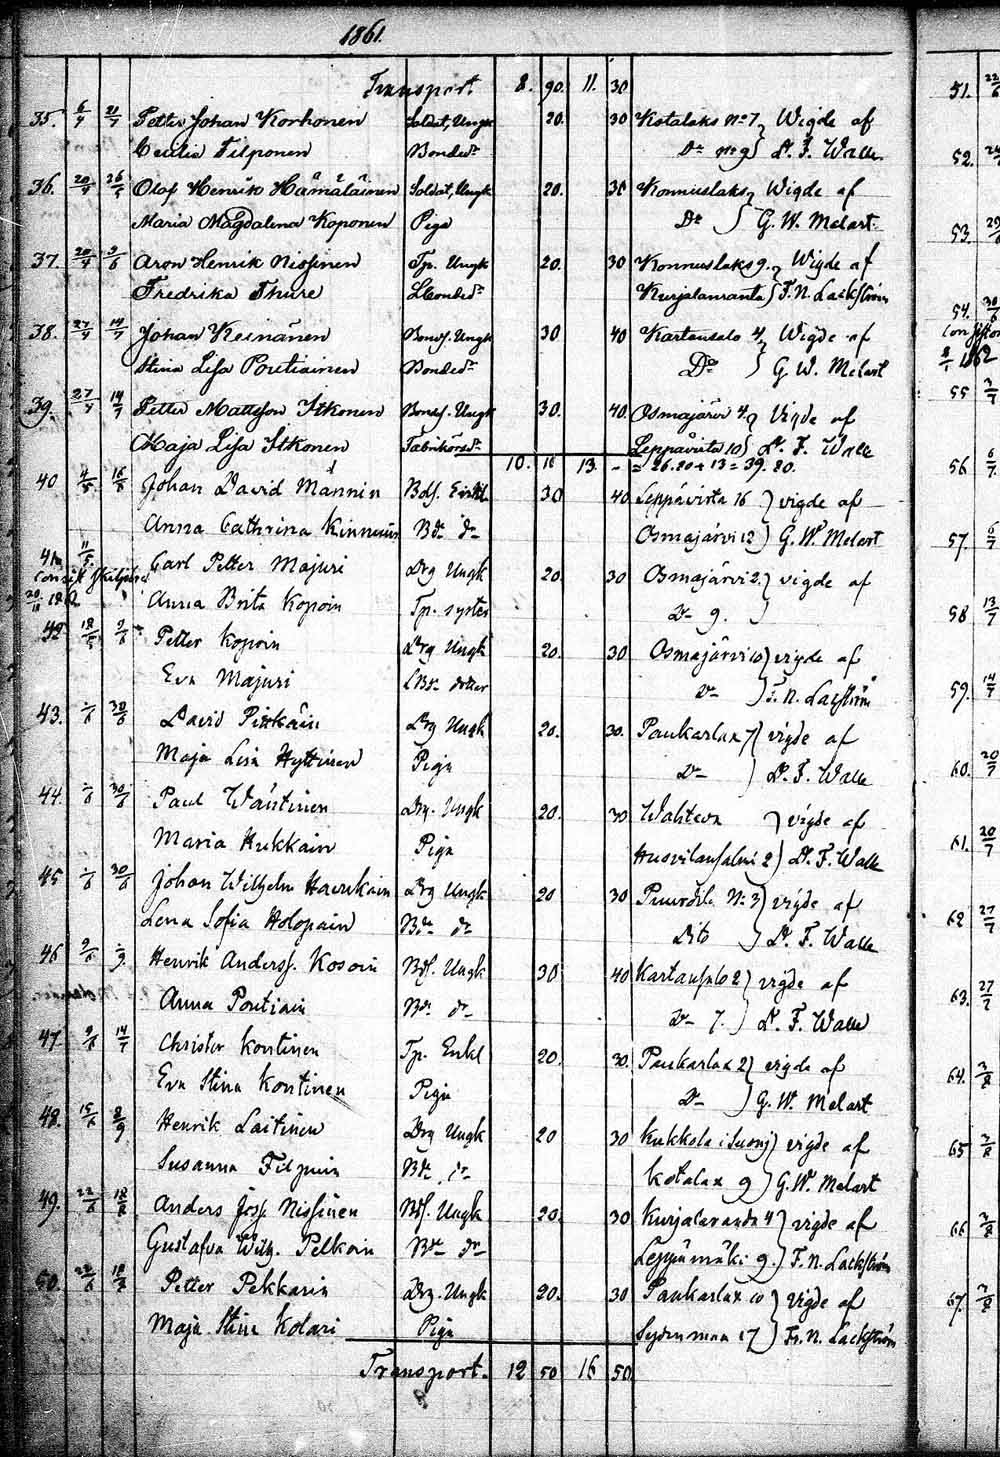 1861.
Transport. 8. 90. 11. 30
35. 6/4 21/7 Petter Johan Korhonen Soldat, Ungk 20. 30 Kotalaks No 7 } Wigde af
Cecilia Filponen Bondedr Do No 9 } Dr. F. Walle
36. 20/4 26/5 Olof Henrik Hämäläinen Soldat, Ungk 20. 30 Konnuslaks } Wigde af
Maria Magdalena Koponen Piga Do } G. W. Melart.
37. 20/4 9/6 Aron Henrik Nissinen Tp. Ungk 20. 30 Konnuslaks 9. } Wigde af
Fredrika Thure Kurjalanranta } F. N. Lackström
38. 27/4 14/7 Johan Keinänen Bondes. Ungk 30 40 Kartansalo 4 } Wigde af
Stina Lisa Pontiainen Bondedr Do } G. W. Melart
39. 27/4 14/7 Petter Mattsson Itkonen Bondes. Ungk 30. 40. Osmajärvi 4. } Vigde af
Maja Lisa Itkonen Leppävirta 10 } Dr. F. Walle
10. 10 13. - = 26.20 + 13 = 39.20.
40 4/5 16/6 Johan David Mannin Bds. Enkl 30 40 Leppävirta 16 } vigde af
Anna Cathrina Kinnunen Bde dr Osmajärvi 12 } G. W. Melart
41. 11/5. Carl Petter Majuri Drg Ungk 20. 30 Osmajärvi 2. } vigde af
Anna Brita Kopoin Tp. syster Do 9. }
42 18/5 9/6 Petter Kopoin Drg Ungk 20. 30 Osmajärvi 10 } vigde af
Eva Majuri Do } F. N. Lacström
43. 1/6 30/6 David Pitkäin Drg Ungk 20. 30. Paukarlax 7 } vigde af
Maja Lisa Hyttinen Piga Do } Dr. F. Walle
44. 1/6 30/6 Paul Wäntinen Drg. Ungk 20. 30 Wahteva } vigde af
Maria Hukkain Piga } Dr. F. Walle
45 1/6 30/6 Johan Wilhelm Haukkain Drg Ungk 20 30 No 3 } vigde af
Lena Sofia Holopain Bde dr Dito } Dr. F. Walle
46 9/6 1/9 Henrik Anderss. Kosoin Bds. Ungk 30 40 Kartansalo 2 } vigde af
Anna Pontiain Bde. dr Do 7. } Dr. F. Walle
47. 9/6 14/7 Christer Kontinen Tp. Enkl 20. 30. Paukarlax 2 } vigde af
Eva Stina Kontinen Piga Do } G. W. Melart
48. 15/6 8/9 Henrik Laitinen Drg Ungk 20 30 Kukkola i Suonj } vigde af
Susanna Filpuin Bde. dr Kotalax 9 } G. W. Melart
49. 22/6 18/8 Anders Joss. Nissinen Bds. Ungk 20. 30 Kurjalaranda 4 } vigde af
Gustafva Wilh. Pelkoin Bde dr Leppämäki 9. } F. N. Lackström
50. 22/6 18/8 Petter Pekkarin Drg. Ungk 20. 30 Paukarlax 10 } vigde af
Maja Stina Kolari Piga Sydänmaa 17 } Fr. N. Lackström
Transport. 12 50 16 50
51. 22/6
52.
53.
54. 30/6
55 7/7
56 6/7
57. 6/7
58 13/7
59. 14/7
60. 20/7
61. 20/7
62 27/7
63. 27/7
64. 3/8
65 3/8
66 3/8
67. 3/8